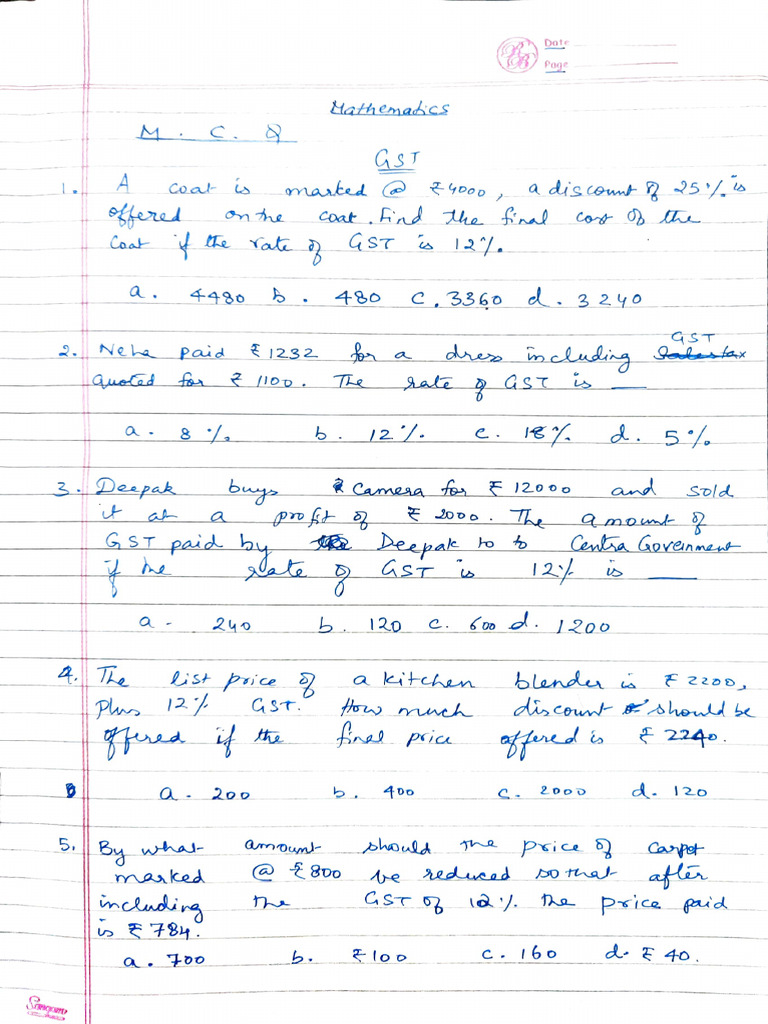 Date
Page
Mathematics
M. C. Q
GST
1. A coat is marked @ ₹4000, a discount of 25% is
offered on the coat. Find the final cost of the
coat if the rate of GST is 12%.
a. 4480 b. 480 c. 3360 d. 3240
GST
2. Neha paid ₹1232 for a dress including
quoted for ₹1100. The rate of GST is __
a. 8% b. 12% c. 18% d. 5%
3. Deepak buys camera for ₹12000 and sold
it at a profit of ₹2000. The amount of
GST paid by Deepak to Centra Government
if the rate of GST is 12% is __
a. 240 b. 120 c. 600 d. 1200
4. The list price of a kitchen blender is ₹2200,
plus 12% GST. How much discount should be
offered if the final price offered is ₹2240.
a. 200 b. 400 c. 2000 d. 120
5. By what amount should the price of carpet
marked @ ₹800 be reduced so that after
including the GST of 12% the price paid
is ₹784.
a. 700 b. ₹100 c. 160 d. ₹40.
Sangam